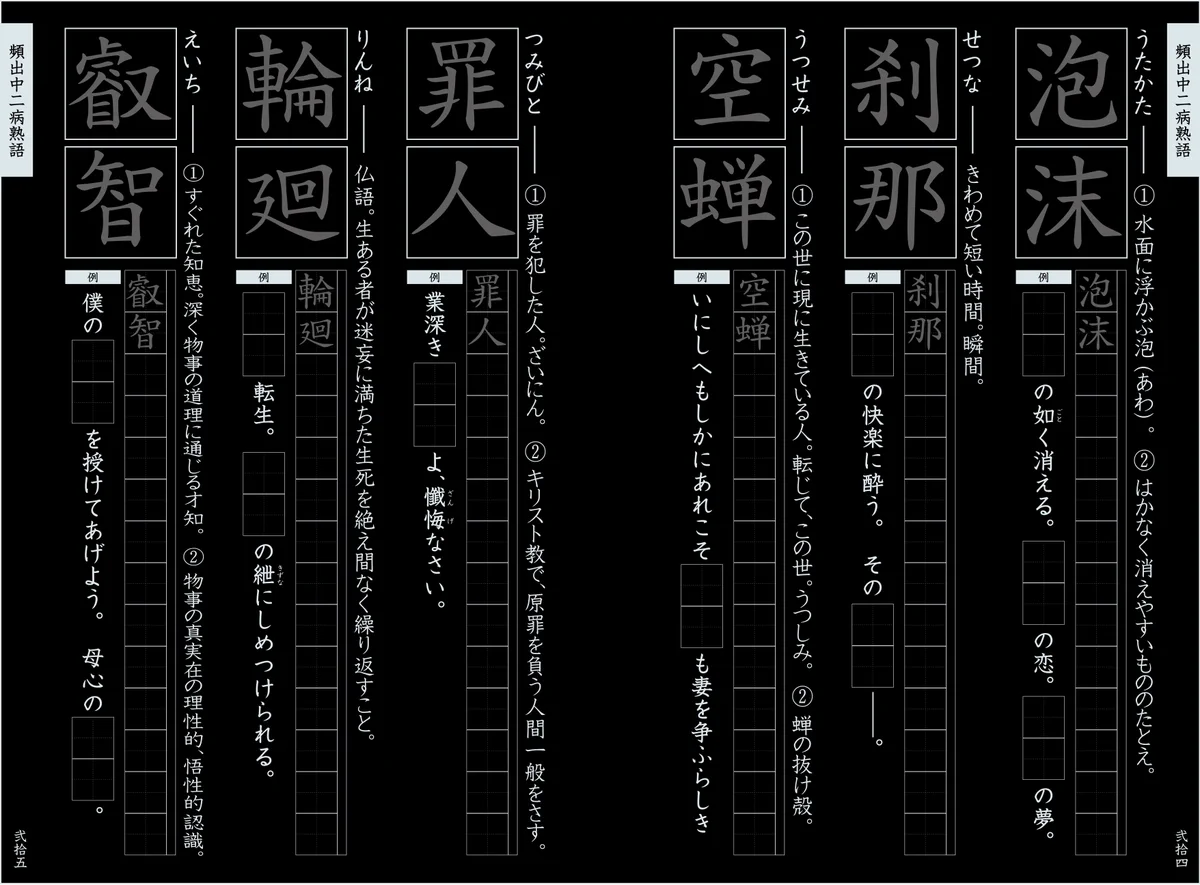 頻出中二病熟語
うたかた――① 水面に浮かぶ泡(あわ)。 ② はかなく消えやすいもののたとえ。
泡沫
泡沫
例
の如く消える。 の恋。 の夢。
ごと
せつな――きわめて短い時間。瞬間。
刹那
刹那
例
の快楽に酔う。 その ――。
うつせみ――① この世に現に生きている人。転じて、この世。うつしみ。 ② 蝉の抜け殻。
空蝉
空蝉
例
いにしへもしかにあれこそ も妻を争ふらしき
弐拾四
つみびと――① 罪を犯した人。ざいにん。 ② キリスト教で、原罪を負う人間一般をさす。
罪人
罪人
例
業深き よ、懺悔なさい。
ざんげ
りんね――仏語。生ある者が迷妄に満ちた生死を絶え間なく繰り返すこと。
輪廻
輪廻
例
転生。 の紲にしめつけられる。
きずな
えいち――① すぐれた知恵。深く物事の道理に通じる才知。 ② 物事の真実在の理性的、悟性的認識。
叡智
叡智
例
僕の を授けてあげよう。 母心の 。
頻出中二病熟語
弐拾五